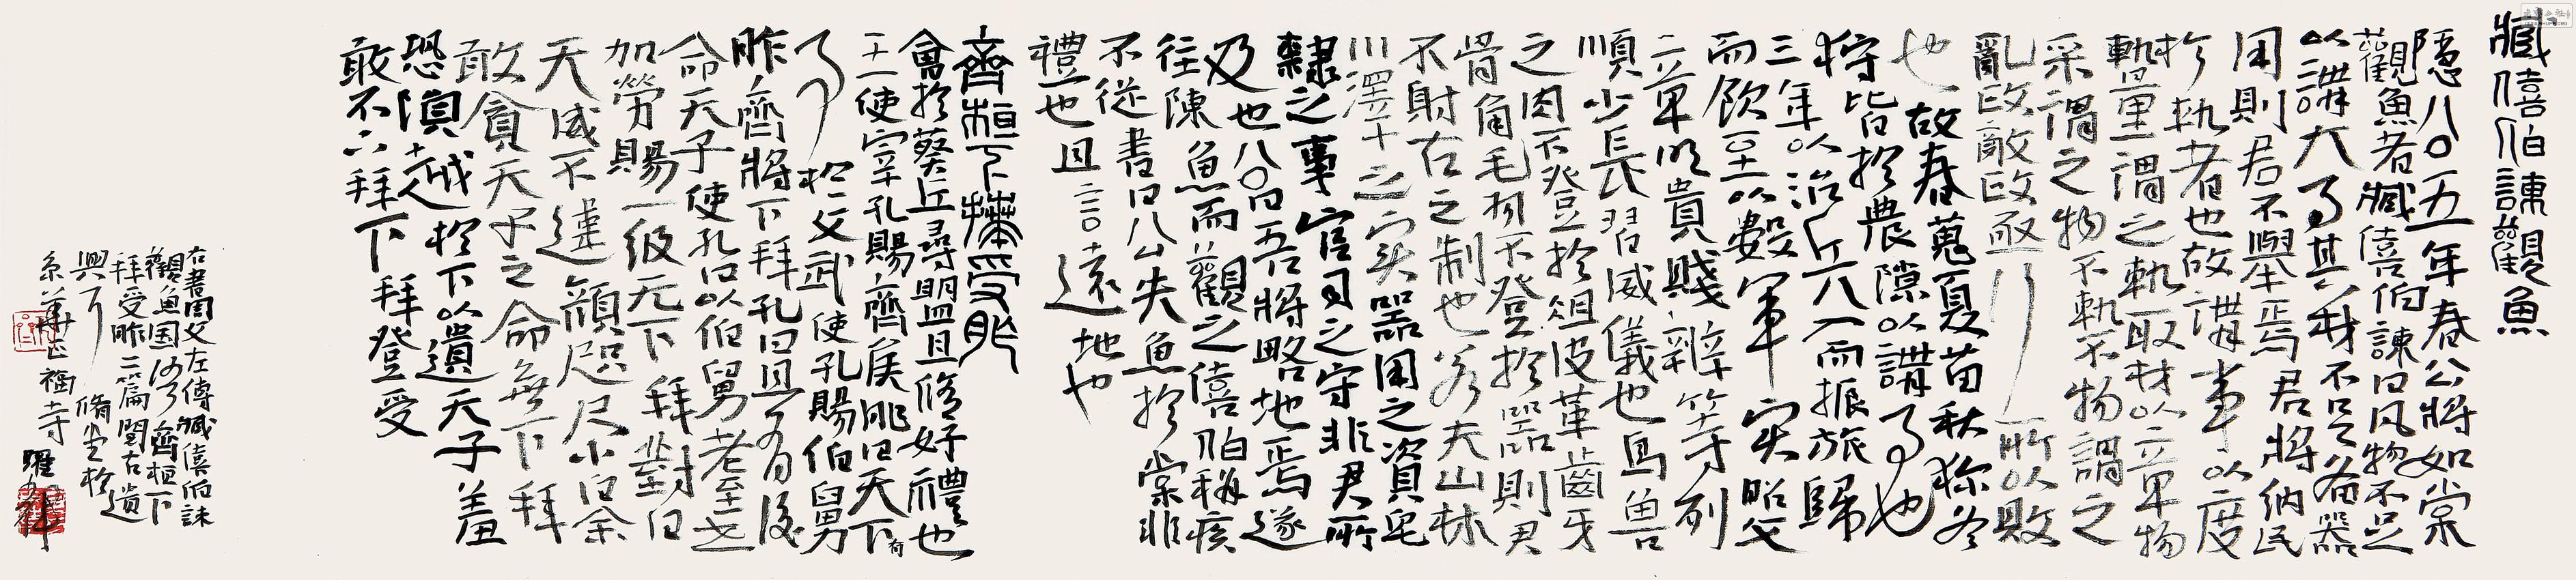 臧僖伯諫觀魚
隱公五年春公將如棠
觀魚者臧僖伯諫曰凡物不足
以講大事其材不足以備器
用則君不舉焉君將納民
於軌者也故講事以度
軌量謂之軌取材以章物
采謂之物不軌不物謂之
亂政亂政亟行所以敗
也故春蒐夏苗秋獮冬
狩皆於農隙以講事也
三年以治兵入而振旅歸
而飲至以數軍實昭文
章明貴賤辨等列
順少長習威儀也鳥獸
之肉不登於俎皮革齒牙
骨角毛羽不登於器則君
不射古之制也若夫山林
川澤之實器用之資皂
隸之事官司之守非君所
及也公曰吾將略地焉遂
往陳魚而觀之僖伯稱疾
不從書曰公矢魚於棠非
禮也且言遠地也
齊桓下拜受胙
會於葵丘尋盟且修好禮也
王使宰孔賜齊侯胙曰天子有
事於文武使孔賜伯舅
胙齊將下拜孔曰且有後
命天子使孔曰以伯舅老
加勞賜一級無下拜對曰
天威不違顏咫尺小白余
敢貪天子之命無下拜
恐隕越於下以遺天子羞
敢不下拜下拜登受
右書周文左傳臧僖伯諫
觀魚齊桓下
拜受胙二篇